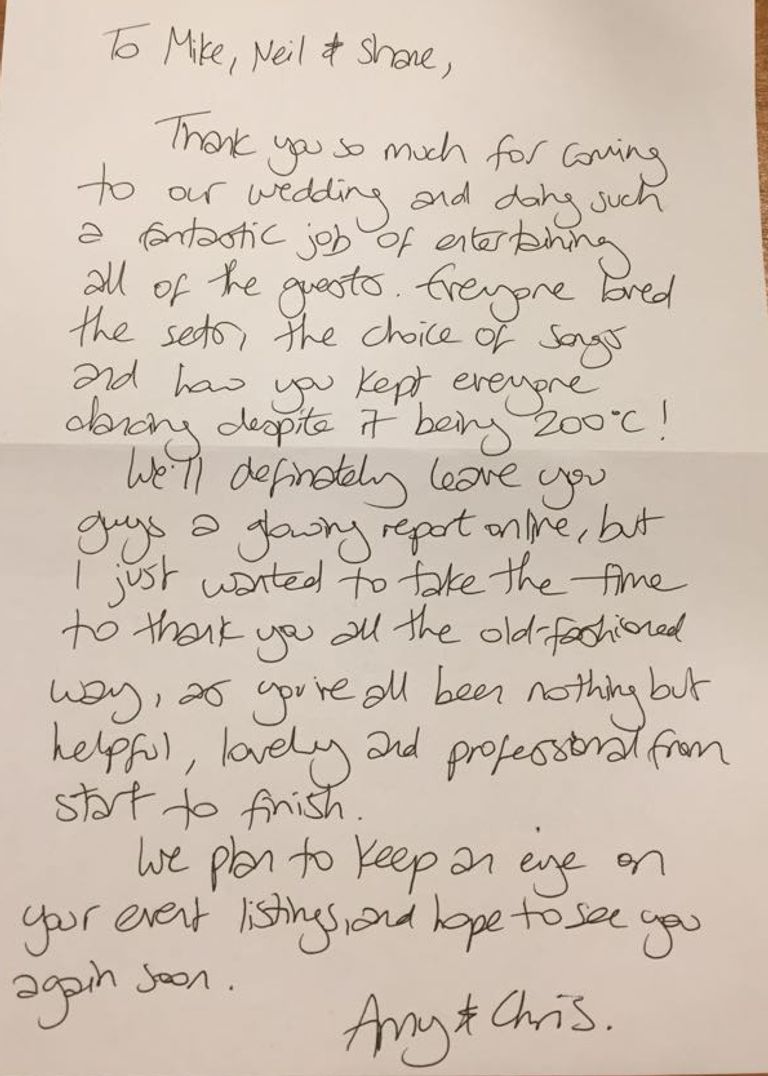 To Mike, Neil & Shane,
Thank you so much for coming
to our wedding and doing such
a fantastic job of entertaining
all of the guests. Everyone loved
the sets, the choice of songs
and how you kept everyone
dancing despite it being 200°C!
We'll definately leave you
guys a glowing report online, but
I just wanted to take the time
to thank you all the old-fashioned
way, as you've all been nothing but
helpful, lovely and professional from
start to finish.
We plan to keep an eye on
your event listings, and hope to see you
again soon.
Amy & Chris.